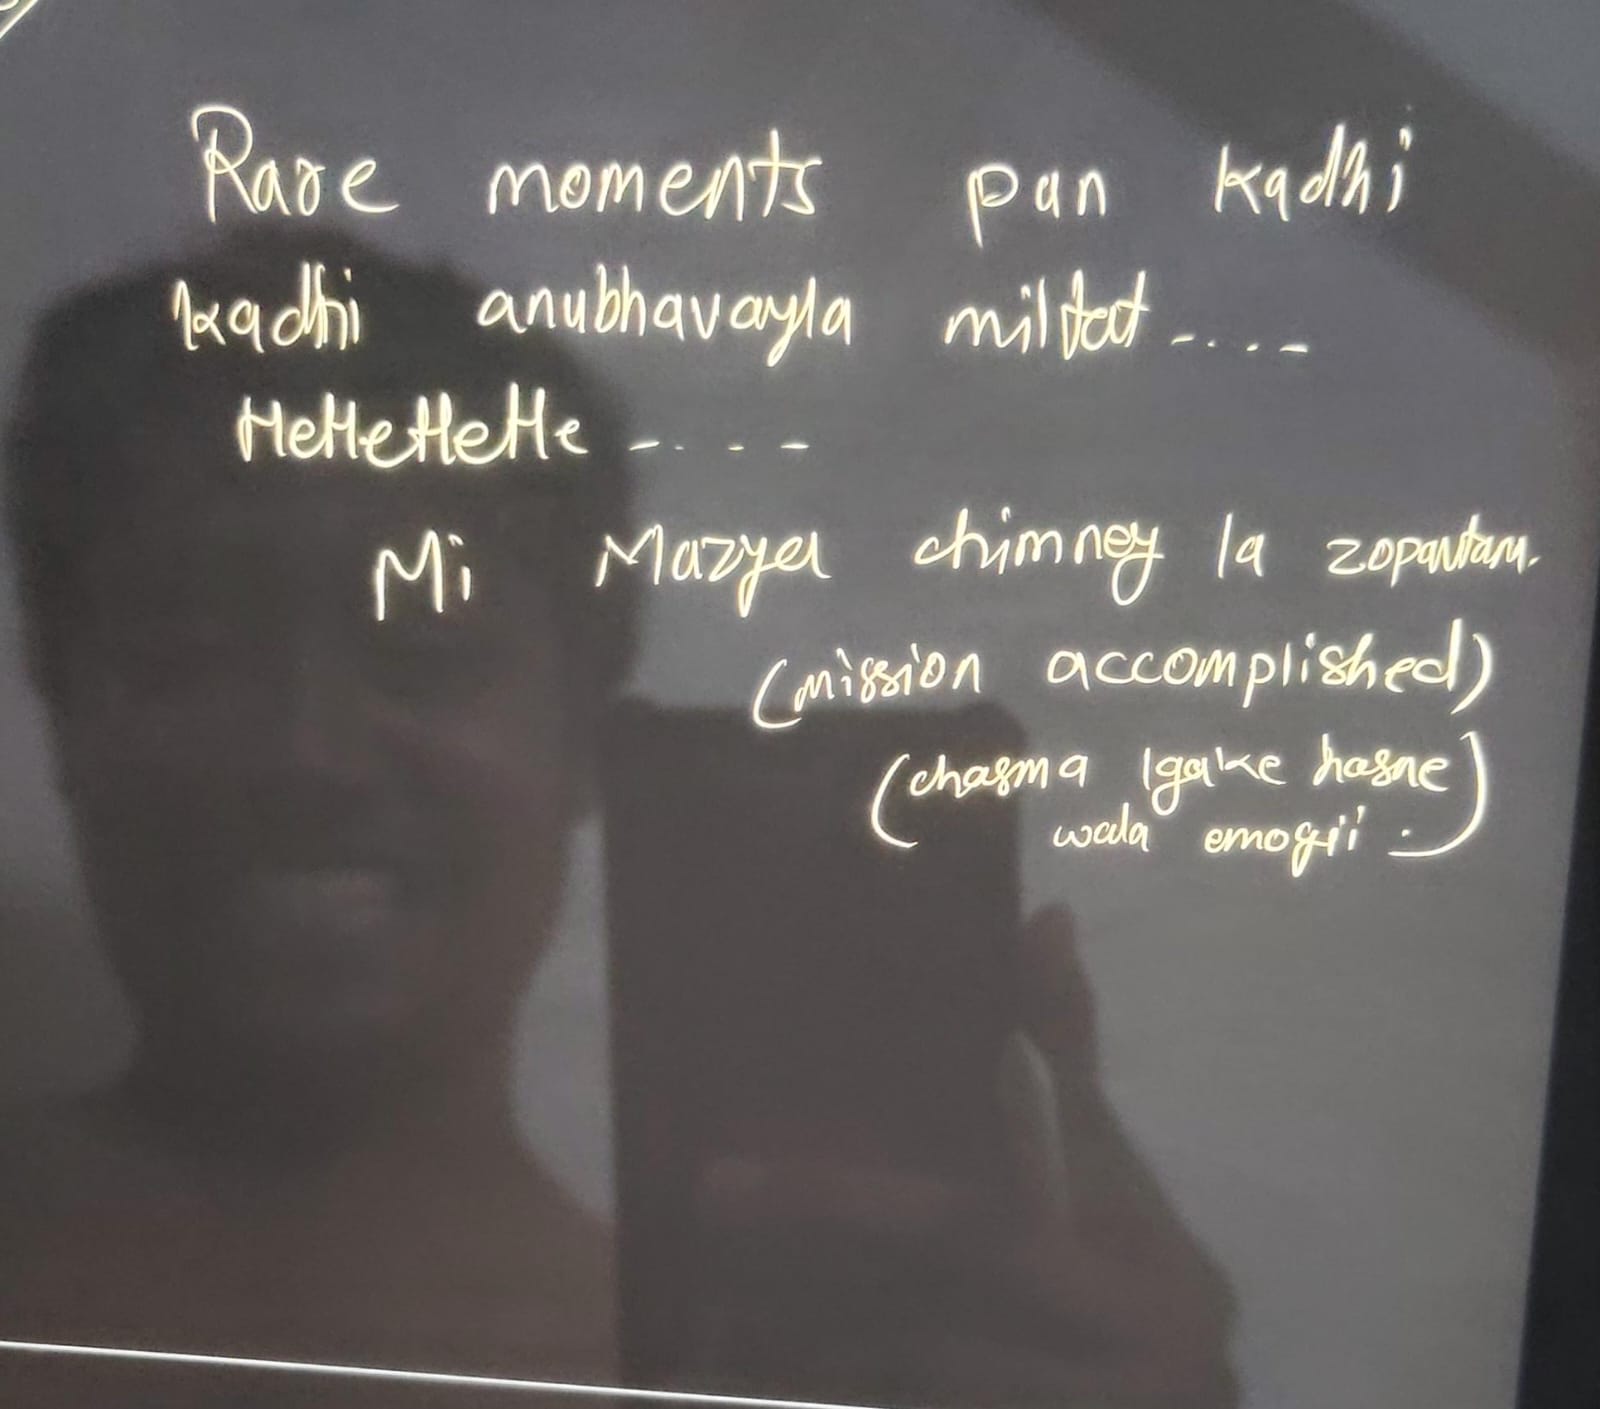 Rare moments pan kadhi
kadhi anubhavayla miltat -....-
HeHeHeHe -...-
Mi Mazya chimney la zopavtam.
(mission accomplished)
(chasma lgake hasne
wala emogii :)